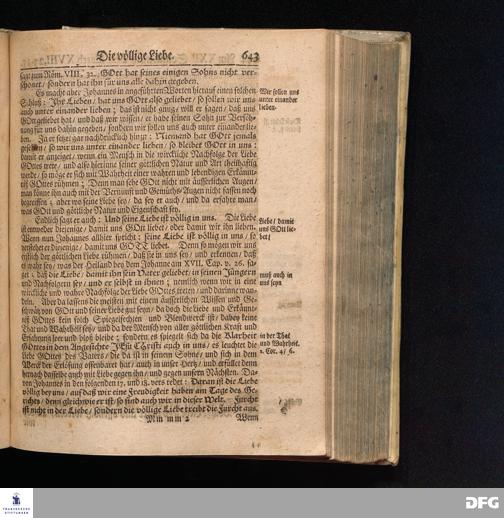 Die völlige Liebe. 643
sagt zum Röm. VIII, 32. GOtt hat seines einigen Sohns nicht ver-
schonet/ sondern hat ihn für uns alle dahin gegeben.
Es macht aber Johannes in angeführten Worten hierauf einen solchen
Schluß: Ihr Lieben/ hat uns GOtt also geliebet/ so sollen wir uns
auch unter einander lieben; das ist nicht genug/ will er sagen/ daß uns
GOtt geliebet hat/ und daß wir wissen/ er habe seinen Sohn zur Versöh-
nung für uns dahin gegeben/ sondern wir sollen uns auch unter einander lie-
ben. Ja er setzet gar nachdrücklich hinzu: Niemand hat GOtt jemals
gesehen/ so wir uns unter einander lieben/ so bleibet GOtt in uns:
damit er anzeiget/ wenn ein Mensch in die wirckliche Nachfolge der Liebe
GOttes trete/ und also hierinne seiner göttlichen Natur und Art theilhaftig
werde/ so möge er sich mit Wahrheit einer wahren und lebendigen Erkännt-
niß GOttes rühmen; Denn man sehe GOtt nicht mit äusserlichen Augen/
man könne ihn auch mit der Vernunft und Gemüths-Augen nicht fassen noch
begreiffen; aber wo seine Liebe sey/ da sey er auch/ und da erfahre man/
was GOtt und göttliche Natur und Eigenschaft sey.
Endlich sagt er auch: Und seine Liebe ist völlig in uns. Die Liebe
ist entweder diejenige/ damit uns GOtt liebet/ oder damit wir ihn lieben.
Wenn nun Johannes allhier spricht: seine Liebe ist völlig in uns/ so
verstehet er diejenige/ damit uns GOTT liebet. Denn so mögen wir uns
endlich der göttlichen Liebe rühmen/ daß sie in uns sey/ und erkennen/ daß
es wahr sey/ was der Heiland bey dem Johanne am XVII. Cap. v. 26. sa-
get: daß die Liebe/ damit ihn sein Vater geliebet/ in seinen Jüngern
und Nachfolgern sey/ und er selbst in ihnen; nemlich wenn wir in eine
wirckliche und wahre Nachfolge der Liebe GOttes treten/ und darinne wan-
deln. Aber da lassens die meisten mit einem äusserlichen Wissen und Ge-
schwätz von GOtt und seiner Liebe gut seyn/ da doch die Liebe und Erkännt-
niß GOttes kein solch Spiegelfechten und Blendwerck ist/ dabey keine
That und Wahrheit sey/ und da der Mensch von aller göttlichen Kraft und
Erfahrung leer und bloß bleibe; sondern es spiegelt sich da die Klarheit
GOttes in dem Angesichte JEsu Christi auch in uns/ es leuchtet die
Liebe GOttes des Vaters/ die da ist in seinem Sohne/ und sich in dem
Werck der Erlösung offenbaret hat/ auch in unser Hertz/ und erfüllet denn
hernach dasselbe auch mit Liebe gegen ihn/ und gegen unsern Nächsten. Da-
von Johannes in den folgenden 17. und 18. vers redet: Daran ist die Liebe
völlig bey uns/ auf daß wir eine Freudigkeit haben am Tage des Ge-
richtes/ denn gleichwie er ist/ so sind auch wir in dieser Welt. Furcht
ist nicht in der Liebe/ sondern die völlige Liebe treibt die Furcht aus.
Mm mm 2 Wenn
Wir sollen uns
unter einander
lieben.
Liebe/ damit
uns GOtt lie-
bet/
muß auch in
uns seyn
in der That
und Wahrheit.
2. Cor. 4/ 6.
FRANCKESCHE
STIFTUNGEN
DFG